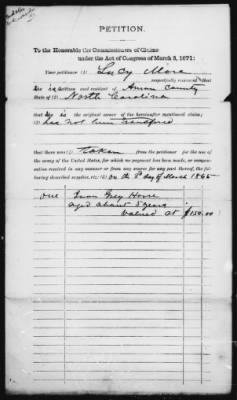 PETITION.
To the Honorable the Commissioners of Claims
under the Act of Congress of March 3, 1871:
Your petitioner (1) Lucy More
respectfully represents that
She is a citizen and resident of Anson County
State of (2) North Carolina
that She is the original owner of the hereinafter mentioned claim;
(3) has not been
that there was (4) taken from the petitioner for the use of
the army of the United States, for which no payment has been made, or compen-
sation received in any manner or from any source for any part thereof, the fol-
lowing described supplies, etc.: (5) On the day of March 1865
one Iron Grey Horse
aged about 5 years
valued at $150.00